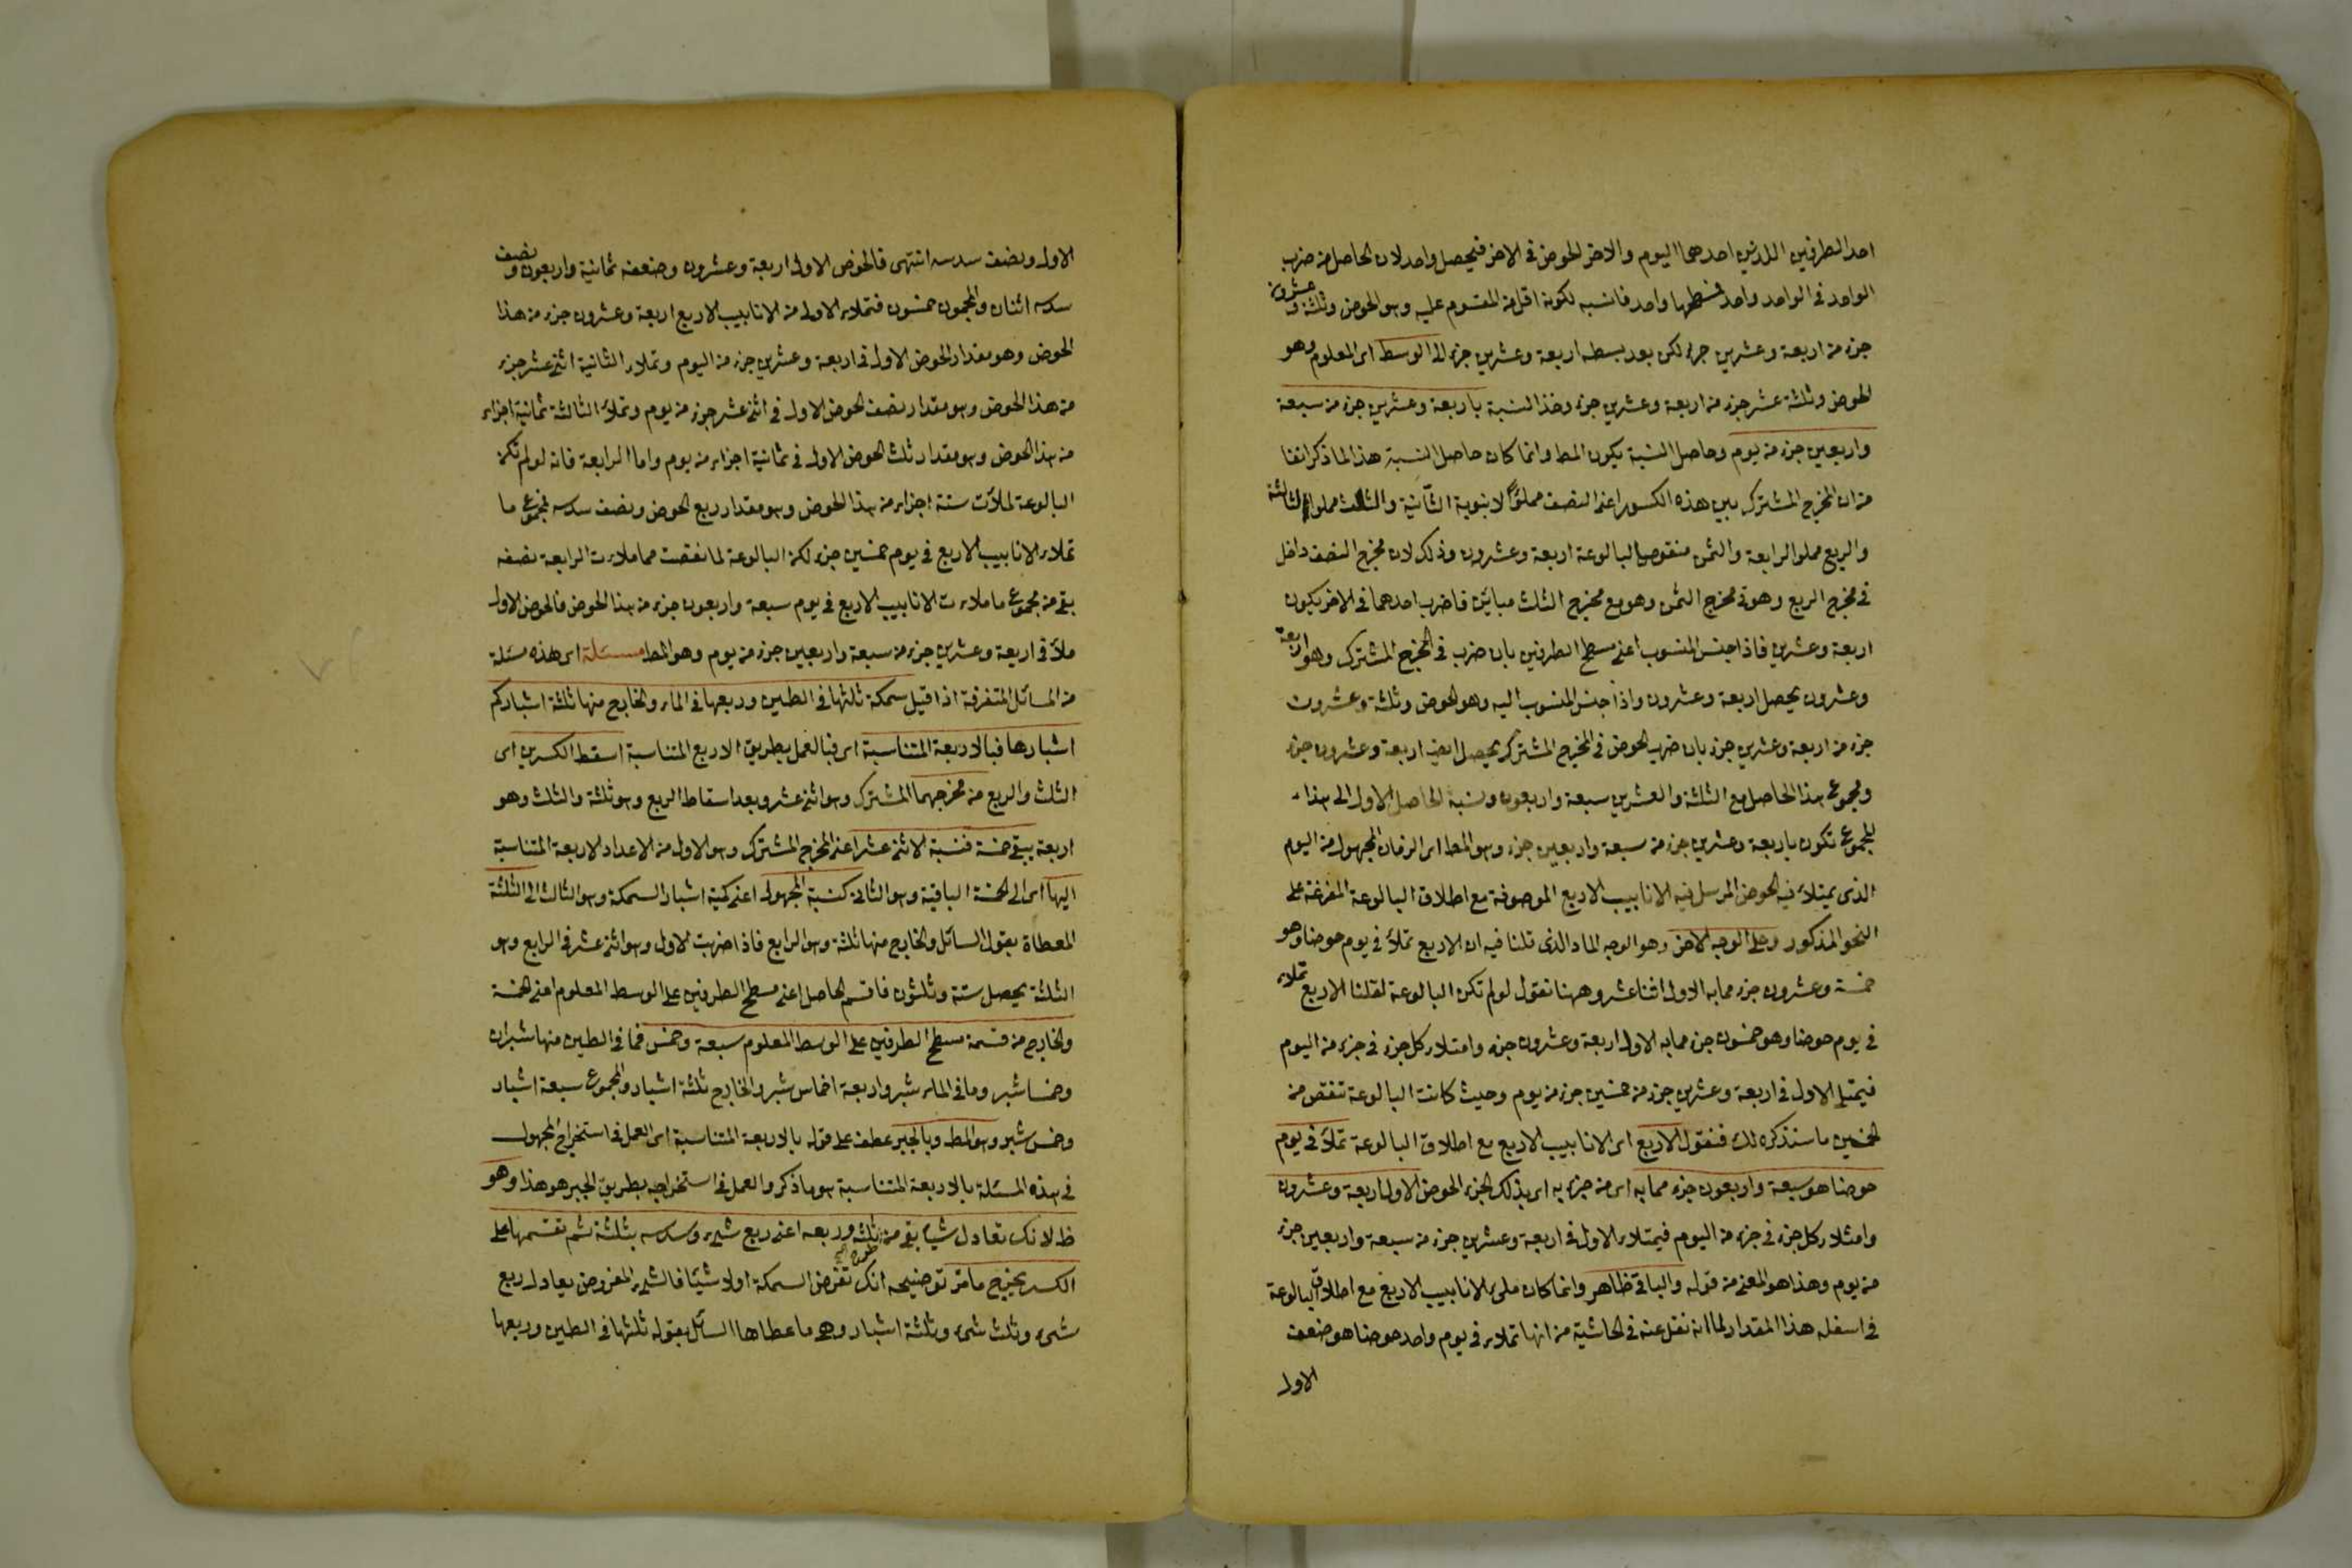 احد الطرفين اللذين احدهما اليوم والاخر الحوض فى الاخر فيحصل واحد لان الحاصل من ضرب
الواحد فى الواحد واحد فسطحها واحد فانسبه لكونه اقل من المقسوم عليه وهو الحوض وثلثة وعشرون
جزء من اربعة وعشرين جزء لكن بعد بسطه اربعة وعشرين جزء الى الوسط اى المعلوم وهو
الحوض وثلثة عشر جزء من اربعة وعشرين جزء وخذ النسبة باربعة وعشرين جزء من سبعة
واربعين جزء من يوم وحاصل النسبة يكون المط وانما كان حاصل النسبة هذا لما ذكر انفا
من ان المخرج المشترك بين هذه الكسور اعنى النصف مملوًا لانبوبة الثانية والثلث مملو الثالثة
والربع مملو الرابعة والثمن منقوص البالوعة اربعة وعشرون وذلك لان مخرج النصف داخل
فى مخرج الربع وهو فى مخرج الثمن وهو مع مخرج الثلث مباين فاضرب احدهما فى الاخر يكون
اربعة وعشرين فاذا جنس المنسوب اعنى مسطح الطرفين بان ضرب فى المخرج المشترك وهو اربعة
وعشرون يحصل اربعة وعشرون واذا جنس المنسوب اليه وهو الحوض وثلثة وعشرون
جزء من اربعة وعشرين جزء بان ضرب الحوض فى المخرج المشترك يحصل ايض اربعة وعشرون جزء
ومجموع هذا الحاصل مع الثلثة والعشرين سبعة واربعون ونسبة الحاصل الاول الى هذا
المجموع تكون باربعة وعشرين جزء من سبعة واربعين جزء وهو المط اى الزمان المجهول من اليوم
الذى يمتلاء فيه الحوض المرسل فيه الانابيب الاربع الموصوفة مع اطلاق البالوعة المفرغة على
النحو المذكور وعلى الوجه الاخر وهو الوجه الماد الذى قلنا فيه ان الاربع تملأ فى يوم حوضا وهو
خمسة وعشرون جزء مما به الاول اثنا عشر وههنا نقول لو لم تكن البالوعة لقلنا الاربع تملاء
فى يوم حوضا وهو خمسون جزء مما به الاول اربعة وعشرون جزء وامتلاء كل جزء فى جزء من اليوم
فيمتلى الاول فى اربعة وعشرين جزء من خمسين جزء من يوم وحيث كانت البالوعة تنقص من
الخمسين ما سنذكره لك فنقول الاربع اى الانابيب الاربع مع اطلاق البالوعة تملأ فى يوم
حوضا هو سبعة واربعون جزء مما به اى من جزء به اى بذلك الجزء الحوض الاول اربعة وعشرون
وامتلاء كل جزء فى جزء من اليوم فيمتلاء الاول فى اربعة وعشرين جزء من سبعة واربعين جزء
من يوم وهذا هو المعنى من قوله والباقى ظاهر وانما كان ملئ الانابيب الاربع مع اطلاق البالوعة
فى اسفله هذا المقدار لما انه نقل عنه فى الحاشية من انها تملاء فى يوم واحد حوضا هو ضعف
الاول
الاول ونصف سدسه انتهى فالحوض الاول اربعة وعشرون وضعفه ثمانية واربعون ونصف
سدسه اثنان والمجموع خمسون فتملاء الاولى من الانابيب الاربع اربعة وعشرون جزء من هذا
الحوض وهو مقدار الحوض الاول فى اربعة وعشرين جزء من اليوم وتملاء الثانية اثنى عشر جزء
من هذا الحوض وهو مقدار نصف الحوض الاول فى اثنى عشر جزء من يوم وتملاء الثالثة ثمانية اجزاء
من هذا الحوض وهو مقدار ثلث الحوض الاول فى ثمانية اجزاء من يوم واما الرابعة فانه لو لم تكن
البالوعة لملأت ستة اجزاء من هذا الحوض وهو مقدار ربع الحوض ونصف سدسه فمجموع ما
تملاء الانابيب الاربع فى يوم خمسين جزء لكن البالوعة لما نقصت مما ملاءت الرابعة نصفه
بقى من مجموع ما ملاءت الانابيب الاربع فى يوم سبعة واربعون جزء من هذا الحوض فالحوض الاول
ملأ فى اربعة وعشرين جزء من سبعة واربعين جزء من يوم وهو المط مسئلة اى هذه مسئلة
من المسائل المتفرقة اذا قيل سمكة ثلثها فى الطين وربعها فى الماء والخارج منها ثلثة اشبار كم
اشبارها فبالاربعة المتناسبة اى فبالعمل بطريق الاربع المتناسبة اسقط الكسرين اى
الثلث والربع من مخرجهما المشترك وهو اثنى عشر وبعد اسقاط الربع وهو ثلثة والثلث وهو
اربعة يبقى خمسة فنسبة الاثنى عشر اعنى المخرج المشترك وهو الاول من الاعداد الاربعة المتناسبة
اليها اى الى الخمسة الباقية وهو الثانى كنسبة المجهول اعنى كمية اشبار السمكة وهو الثالث الى الثلثة
المعطاة بقول السائل والخارج منها ثلثة وهو الرابع فاذا ضربت الاول وهو اثنى عشر فى الرابع وهو
الثلثة يحصل ستة وثلثون فاقسم الحاصل اعنى مسطح الطرفين على الوسط المعلوم اعنى الخمسة
والخارج من قسمة مسطح الطرفين على الوسط المعلوم سبعة وخمس فما فى الطين منها شبران
وخمسا شبر وما فى الماء شبر واربعة اخماس شبر والخارج ثلثة اشبار والمجموع سبعة اشبار
وخمس شبر وهو المط وبالجبر عطف على قوله بالاربعة المتناسبة اى العمل فى استخراج المجهول
فى هذه المسئلة بالاربعة المتناسبة هو ما ذكر والعمل فى استخراجه بطريق الجبر هو هذا وهو
ظ لانك تعادل شيئا بقى منه ثلثه وربعه اعنى ربع شئ وسدسه بثلثة ثم تقسمها على
الكسر يخرج ما مر توضيحه انك تفرض السمكة اولا شيئا فالشئ المفروض يعادل ربع
شئ وثلث شئ وثلثة اشبار وهى ما عطاها السائل بقوله ثلثها فى الطين وربعها